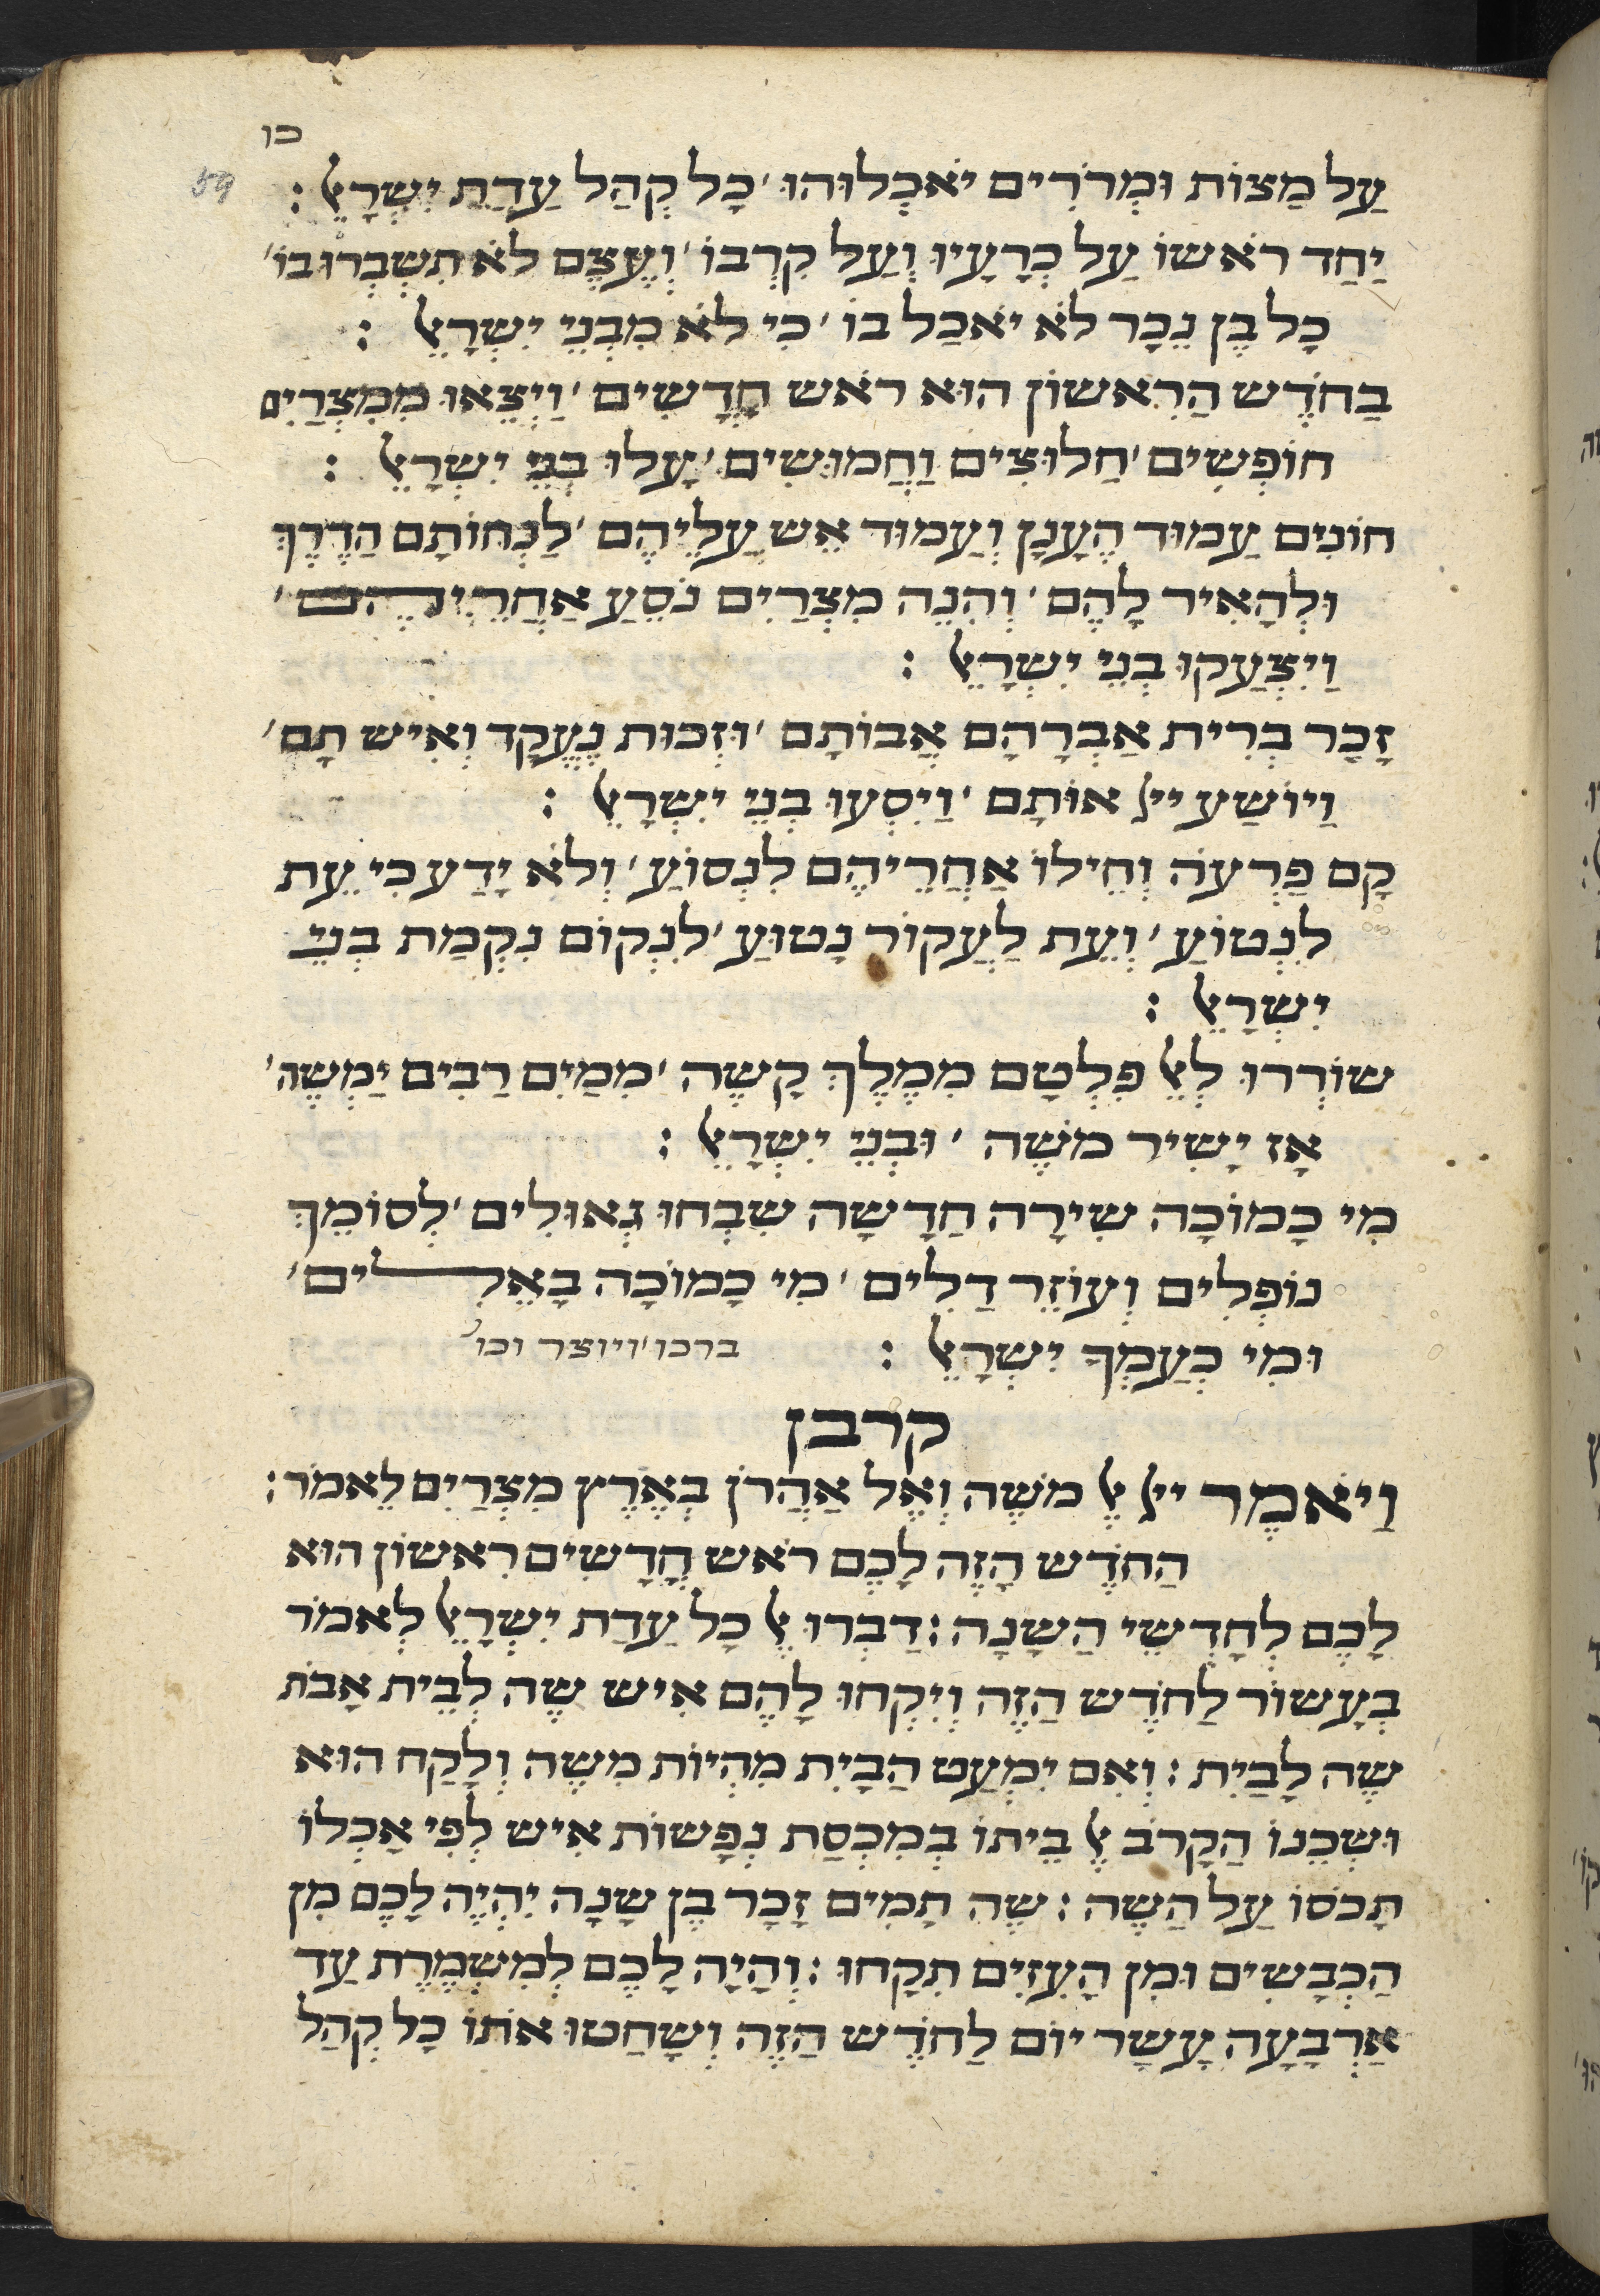 כו
59
עַל מַצּוֹת וּמְרֹרִים יֹאכְלוּהוּ ׳ כָּל קְהַל עֲדַת יִשְׂרָאֵל :
יַחַד רֹאשׁוֹ עַל כְּרָעָיו וְעַל קִרְבּוֹ ׳ וְעֶצֶם לֹא תִשְׁבְּרוּ בוֹ ׳
כָּל בֶּן נֵכָר לֹא יֹאכַל בּוֹ ׳ כִּי לֹא מִבְּנֵי יִשְׂרָאֵל :
בַּחֹדֶשׁ הָרִאשׁוֹן הוּא רֹאשׁ חֳדָשִׁים ׳ וַיֵּצְאוּ מִמִּצְרַיִם
חוֹפְשִׁים ׳ חֲלוּצִים וַחֲמוּשִׁים ׳ עָלוּ בְּנֵי יִשְׂרָאֵל :
חוֹנִים עַמּוּד הֶעָנָן וְעַמּוּד אֵשׁ עֲלֵיהֶם ׳ לַנְחוֹתָם הַדֶּרֶךְ
וּלְהָאִיר לָהֶם ׳ וְהִנֵּה מִצְרַיִם נֹסֵעַ אַחֲרֵיהֶם ׳
וַיִּצְעֲקוּ בְּנֵי יִשְׂרָאֵל :
זָכַר בְּרִית אַבְרָהָם אֲבוֹתָם ׳ וּזְכוּת נֶעֱקָד וְאִישׁ תָּם ׳
וַיּוֹשַׁע ייל אוֹתָם ׳ וַיִּסְעוּ בְּנֵי יִשְׂרָאֵל :
קָם פַּרְעֹה וְחֵילוֹ אַחֲרֵיהֶם לִנְסוֹעַ ׳ וְלֹא יָדַע כִּי עֵת
לִנְטוֹעַ ׳ וְעֵת לַעֲקוֹר נָטוּעַ ׳ לִנְקוֹם נִקְמַת בְּנֵי
יִשְׂרָאֵל :
שׁוֹרְרוּ לְאֵל פִּלְּטָם מִמֶּלֶךְ קָשֶׁה ׳ מִמַּיִם רַבִּים יַמְשֶׁה ׳
אָז יָשִׁיר מֹשֶׁה ׳ וּבְנֵי יִשְׂרָאֵל :
מִי כָמוֹכָה שִׁירָה חֲדָשָׁה שִׁבְּחוּ גְאוּלִים ׳ לְסוֹמֵךְ
נוֹפְלִים וְעוֹזֵר דַּלִּים ׳ מִי כָמוֹכָה בָאֵלִים ׳
וּמִי כְעַמְּךָ יִשְׂרָאֵל : ברכו ׳ ויוצר וכו׳
קרבן
וַיֹּאמֶר ייל אֶל מֹשֶׁה וְאֶל אַהֲרֹן בְּאֶרֶץ מִצְרַיִם לֵאמֹר :
הַחֹדֶשׁ הַזֶּה לָכֶם רֹאשׁ חֳדָשִׁים רִאשׁוֹן הוּא
לָכֶם לְחָדְשֵׁי הַשָּׁנָה : דַּבְּרוּ אֶל כָּל עֲדַת יִשְׂרָאֵל לֵאמֹר
בֶּעָשׂוֹר לַחֹדֶשׁ הַזֶּה וְיִקְחוּ לָהֶם אִישׁ שֶׂה לְבֵית אָבֹת
שֶׂה לַבַּיִת : וְאִם יִמְעַט הַבַּיִת מִהְיוֹת מִשֶּׂה וְלָקַח הוּא
וּשְׁכֵנוֹ הַקָּרֹב אֶל בֵּיתוֹ בְּמִכְסַת נְפָשׁוֹת אִישׁ לְפִי אָכְלוֹ
תָּכֹסּוֹ עַל הַשֶּׂה : שֶׂה תָמִים זָכָר בֶּן שָׁנָה יִהְיֶה לָכֶם מִן
הַכְּבָשִׂים וּמִן הָעִזִּים תִּקָּחוּ : וְהָיָה לָכֶם לְמִשְׁמֶרֶת עַד
אַרְבָּעָה עָשָׂר יוֹם לַחֹדֶשׁ הַזֶּה וְשָׁחֲטוּ אֹתוֹ כָּל קְהַל